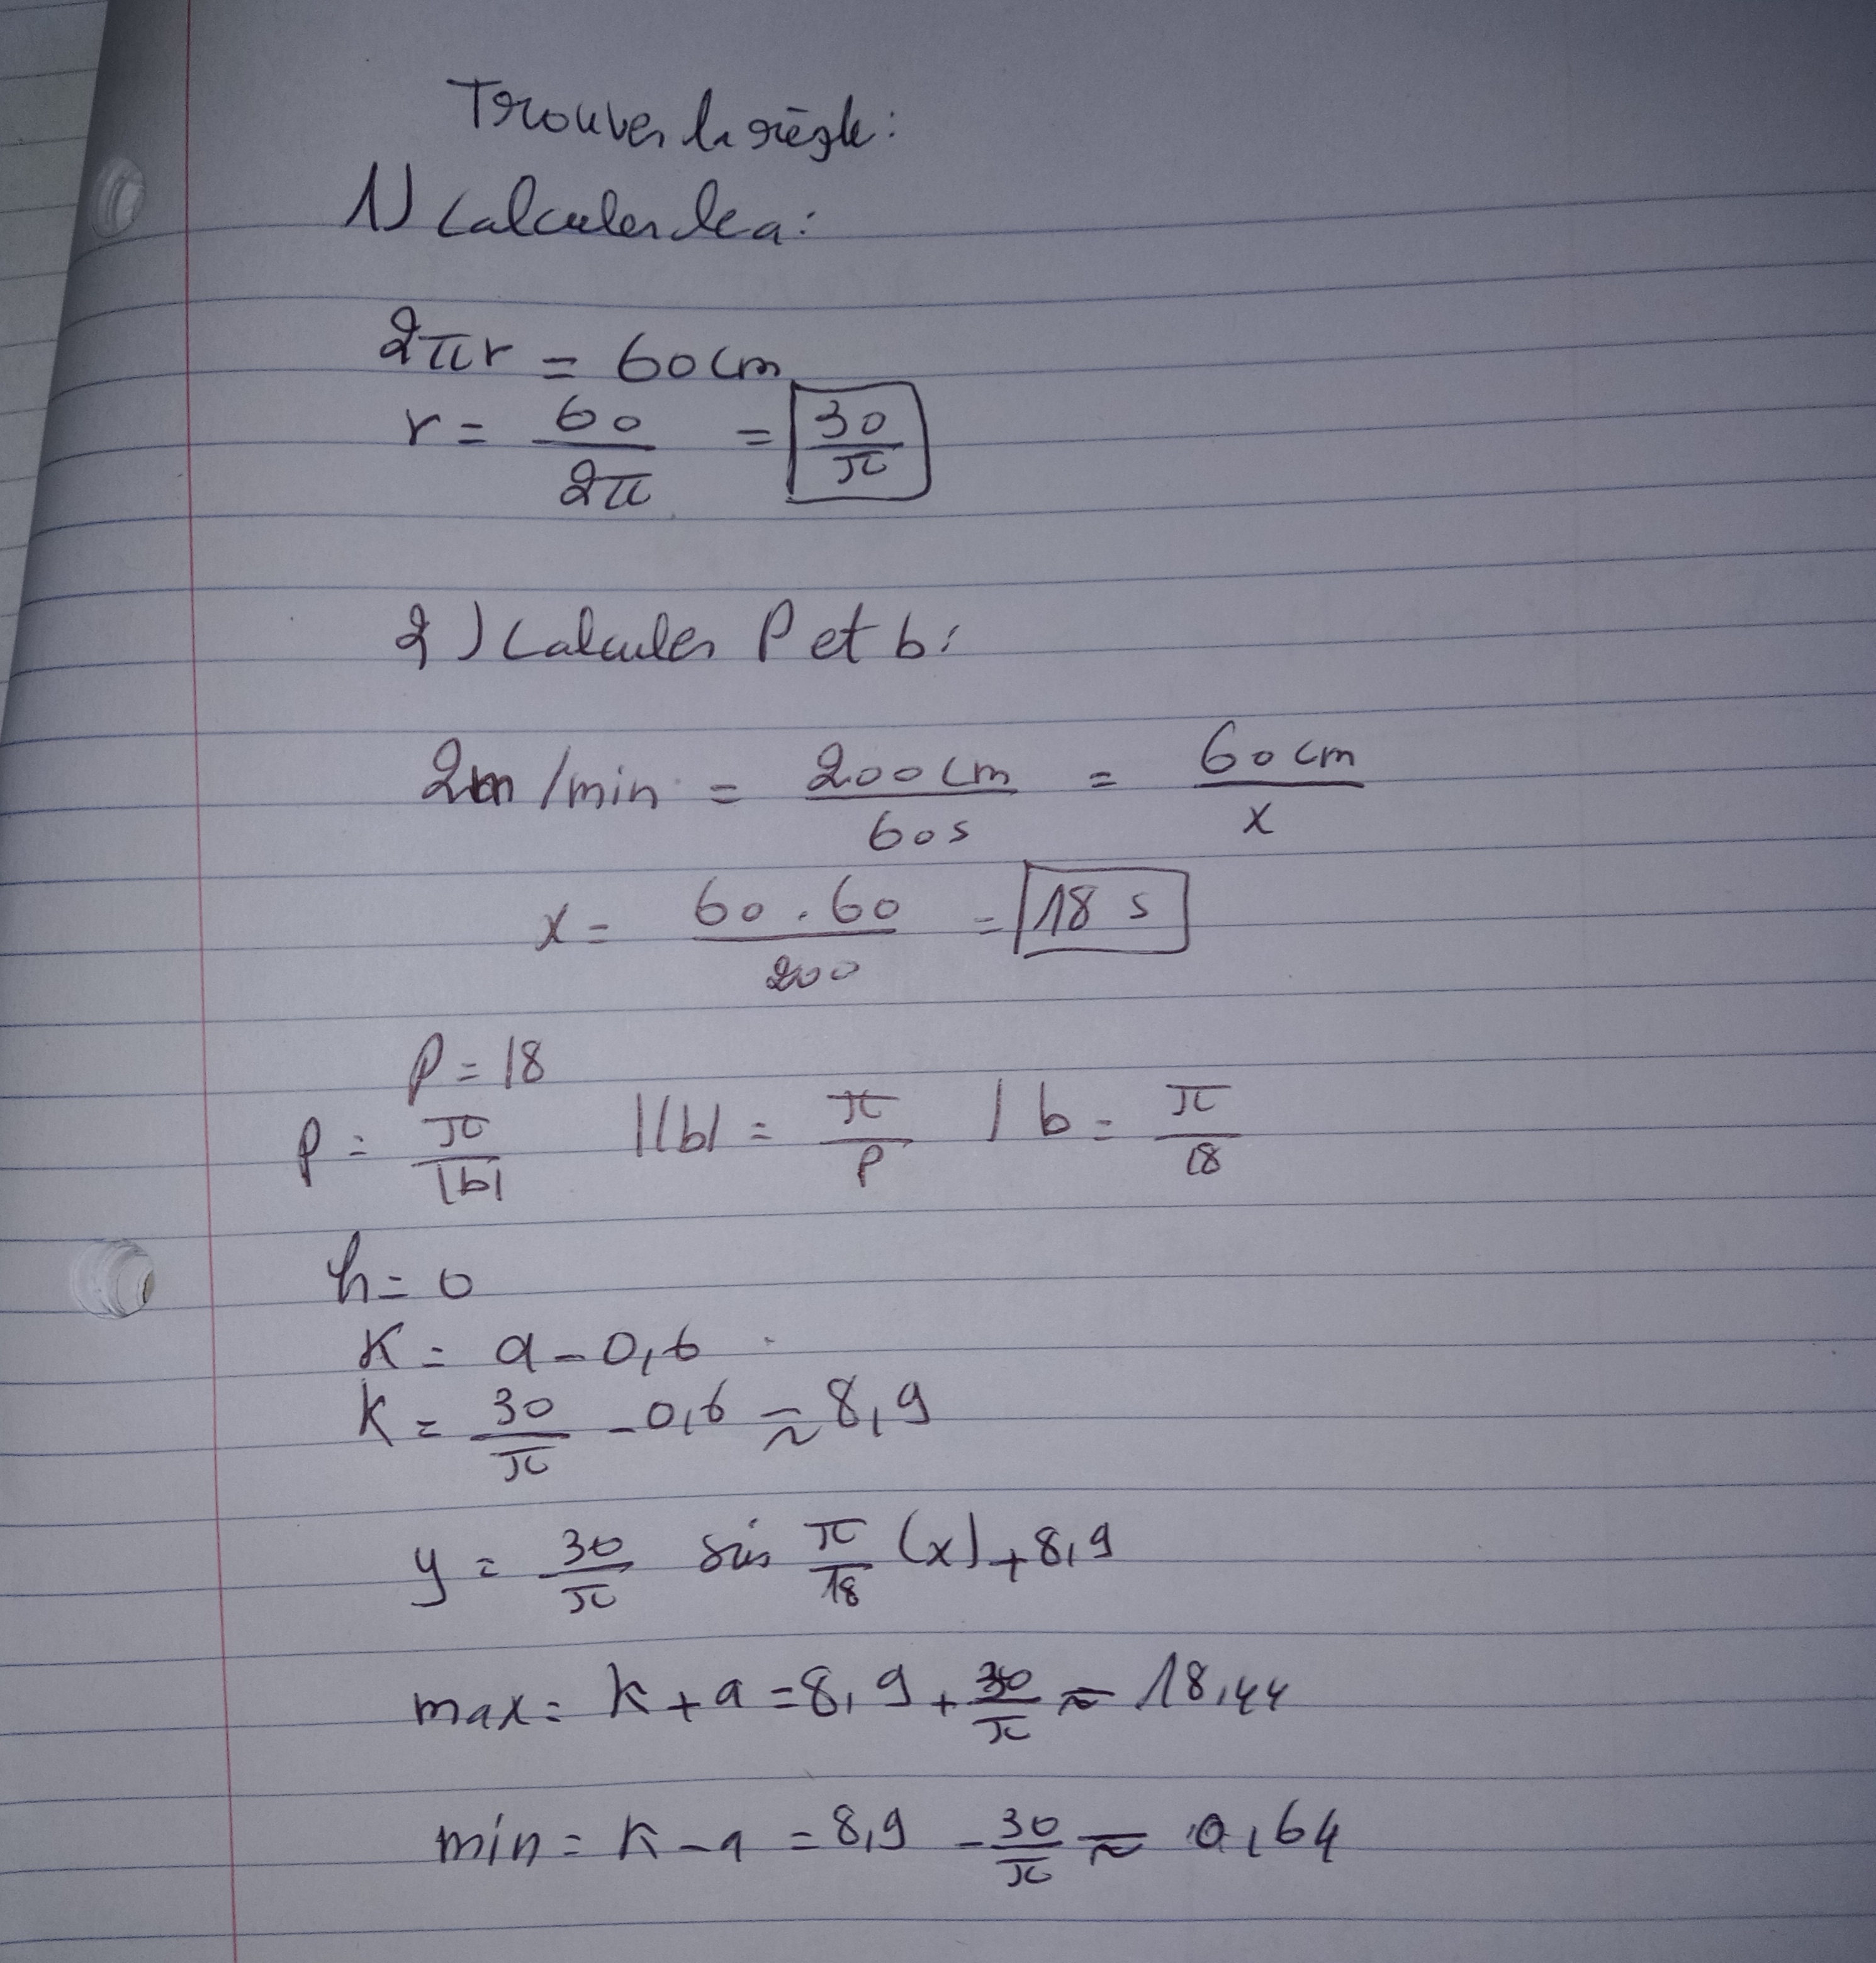 Trouver la règle:
1) Calculer le a:
2πr = 60 cm
r = 60/2π = 30/π
2) Calculer P et b:
2m/min = 200cm/60s = 60cm/x
x = 60.60/200 = 18 s
P = 18
P = π/|b| |(b| = π/P | b = π/18
h = 0
K = a - 0,6
K = 30/π - 0,6 ≈ 8,9
y = 30/π sin π/18 (x) + 8,9
max = k + a = 8,9 + 30/π ≈ 18,44
min = k - a = 8,9 - 30/π ≈ 0,64